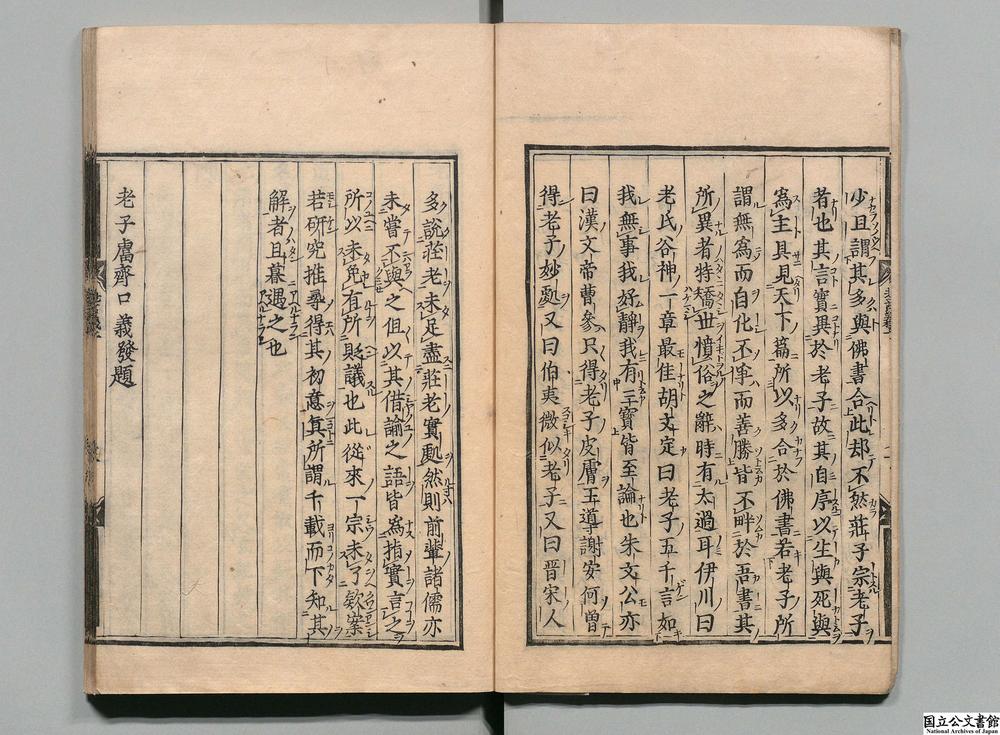 少且謂其多與佛書合此却不然莊子宗老子
者也其言實異於老子故其自序以生與死與
爲主具見天下篇所以多合於佛書若老子所
謂無爲而自化不爭而善勝皆不畔於吾書其
所異者特矯世憤俗之辭時有太過耳伊川曰
老氏谷神一章最佳胡文定曰老子五千言如
我無事我好靜我有三寶皆至論也朱文公亦
曰漢文帝曹參只得老子皮膚王導謝安何曾
得老子妙處又曰伯夷微似老子又曰晋宋人
多說莊老未足盡莊老實處然則前輩諸儒亦
未嘗不與之但以其借諭之語皆爲指實言之
所以未免有所貶議也此從來一宗未了欵案
若研究推尋得其初意眞所謂千載而下知其
解者且暮遇之也
老子鬳齊口義發題
国立公文書館
National Archives of Japan